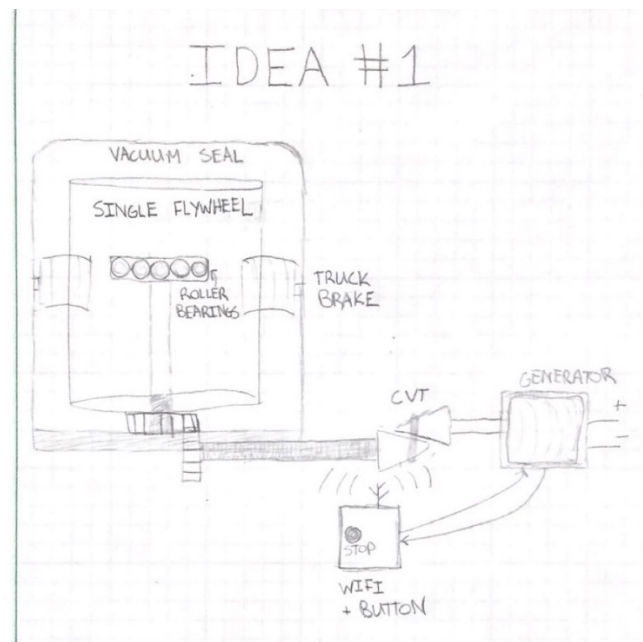 IDEA #1
VACUUM SEAL
SINGLE FLYWHEEL
ROLLER
BEARINGS
TRUCK
BRAKE
CVT
GENERATOR
+
-
STOP
WIFI
+ BUTTON